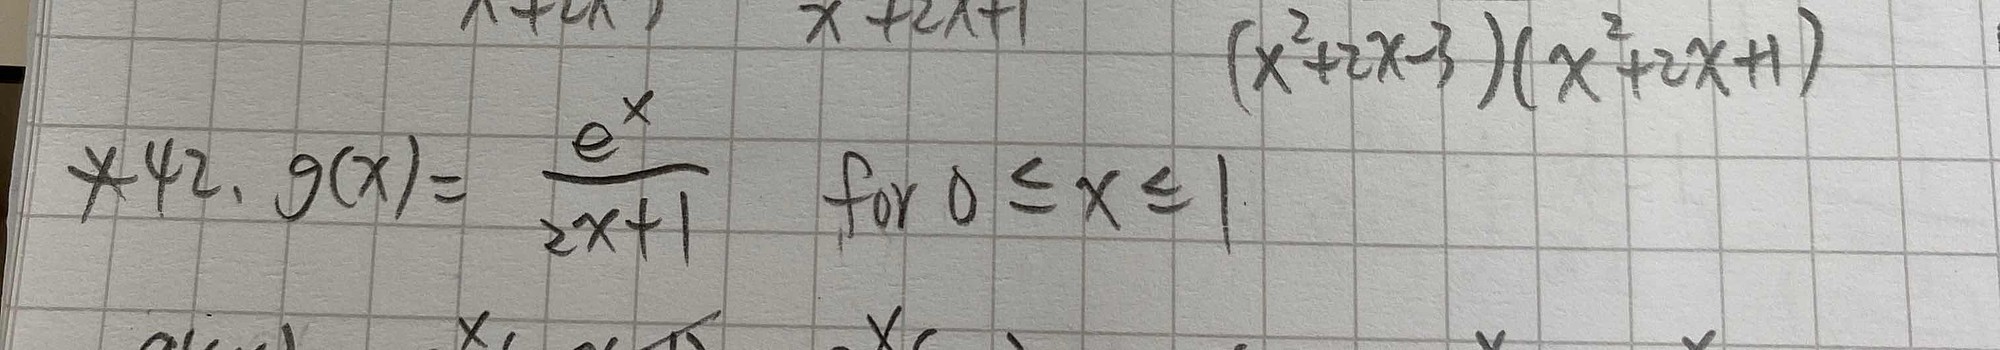 x+2x+1 (x²+2x-3)(x²+2x+1)
*42. g(x) = e^x/(2x+1) for 0 ≤ x ≤ 1